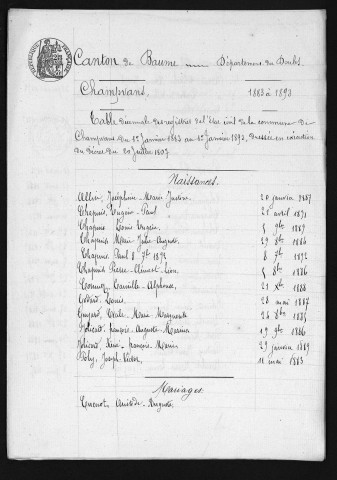 Canton de Baume Département du Doubs.
Champvans, 1883 à 1893
Table décennale des registres de l'état civil de la commune de
Champvans du 1er Janvier 1883 au 1er Janvier 1893, dressée en exécution
du décret du 20 Juillet 1807
Naissances.
Joséphine-Marie 20 janvier 1887
Chapuis Eugène-Paul 21 avril 1891
Chapuis Louis Eugène 1889
Chapuis Marie Julie 29 8bre 1886
Chapuis Paul 8 7bre 1892
Chapuis Pierre-Clément-Léon 1886
Camille-Alphonse 21 Xbre 1888
Louis 20 mai 1887
Cécile Marie Marguerite 26 8bre 1885
François-Auguste 19 9bre 1886
René-François-Marie 29 janvier 1889
Joseph-Victor 18 mai 1883
Mariages
Cuenot, Auguste